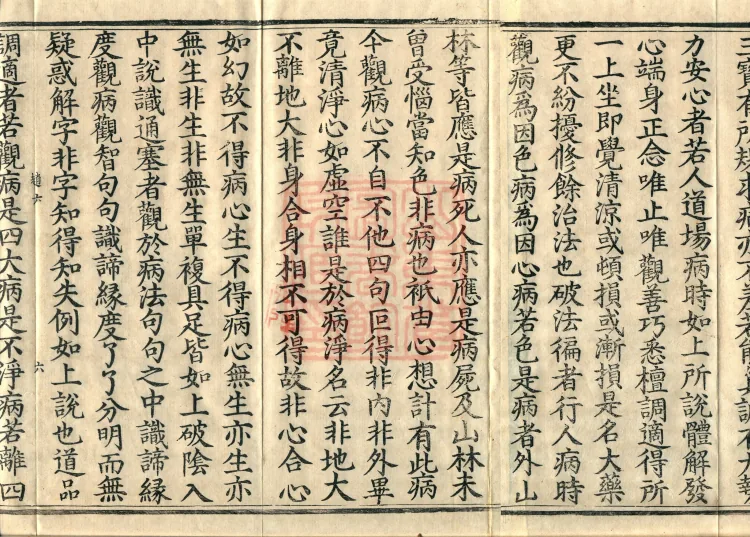 力安心者若人道場病時如上所說體解發
心端身正念唯止唯觀善巧悉檀調適得所
一上坐即覺清涼或頓損或漸損是名大藥
更不紛擾修餘治法也破法徧者行人病時
觀病爲因色病爲因心病若色是病者外山
林等皆應是病死人亦應是病屍及山林未
曾受惱當知色非病也秖由心想計有此病
今觀病心不自不他四句叵得非內非外畢
竟清淨心如虛空誰是於病淨名云非地大
不離地大非身合身相不可得故非心合心
如幻故不得病心生不得病心無生亦生亦
無生非生非無生單複具足皆如上破陰入
中說識通塞者觀於病法句句之中識諦緣
度觀病觀智句句識諦緣度了了分明而無
疑惑解字非字知得知失例如上說也道品
趙六 六
調適者若觀病是四大病是不淨病若離四